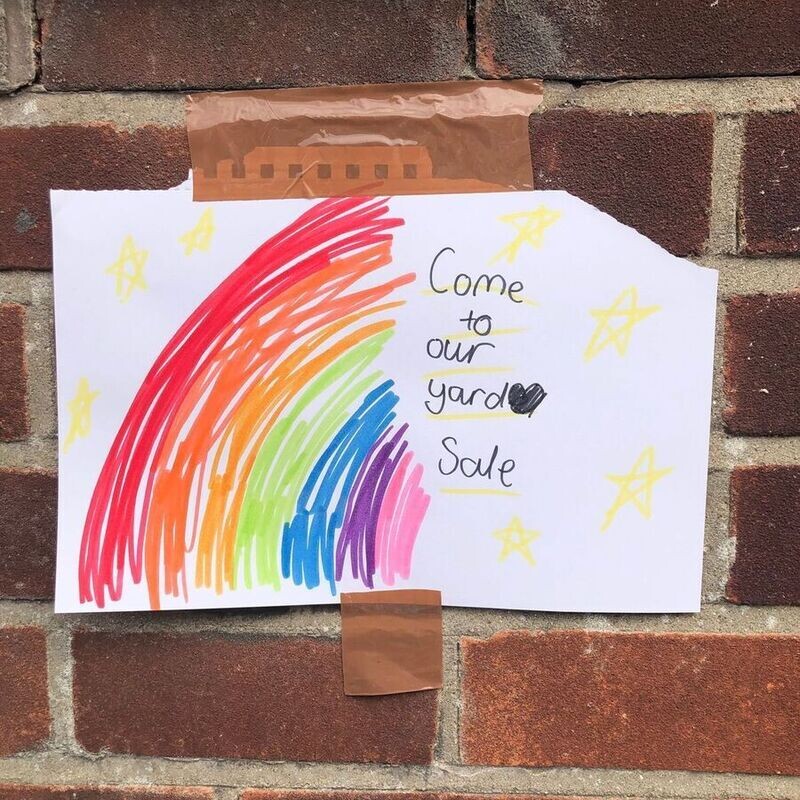 Come
to
our
yard
Sale